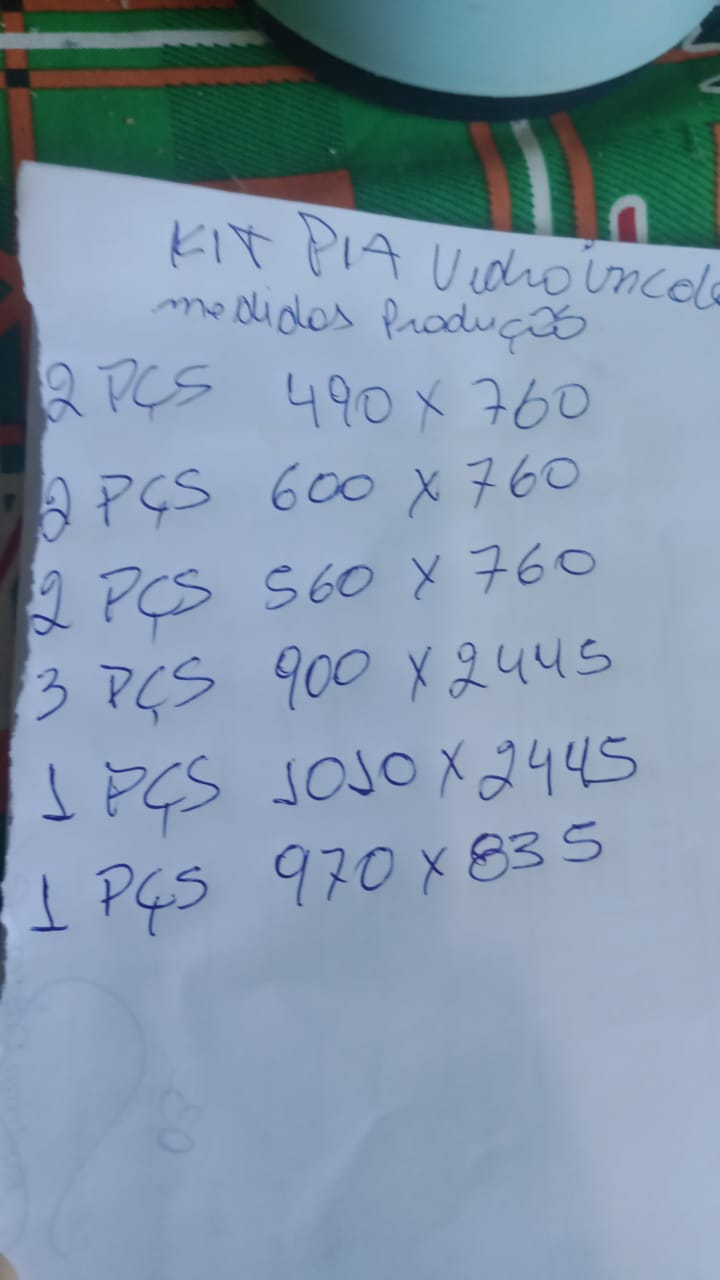 KIT PIA Vidro incolo
medidas Produção
2 PÇS 490 x 760
2 PÇS 600 x 760
2 PÇS 560 x 760
3 PÇS 900 x 2445
1 PÇS 1010 x 2445
1 PÇS 970 x 835